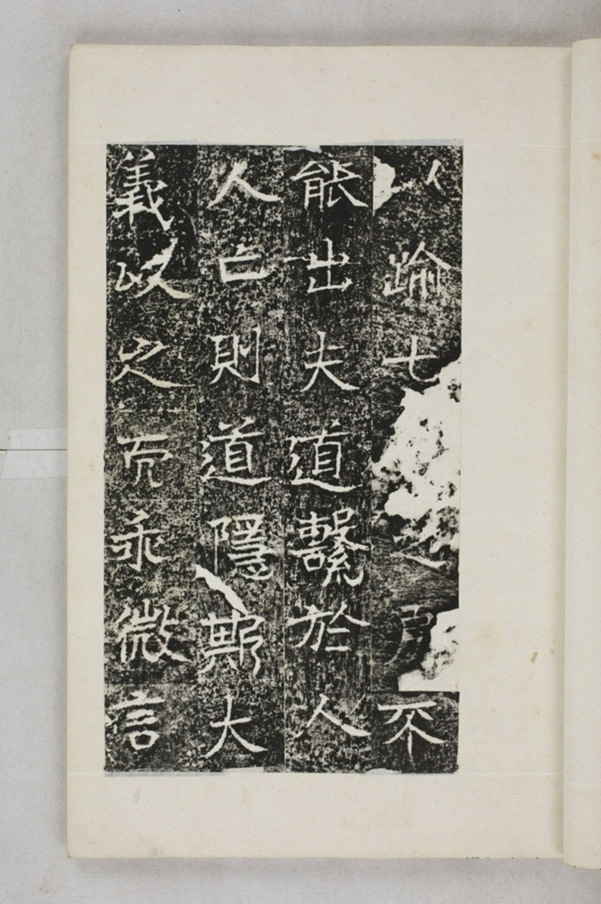 以踰七之不
能出夫道繫於人
人亡則道隱斯大
義以之而乖微言